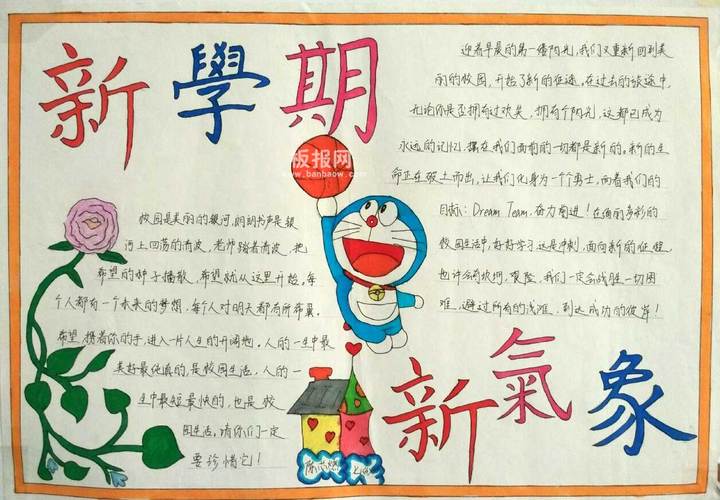 新學期
板报网
www.banbaow.com
迎着早晨的第一缕阳光,我们又重新回到美
丽的校园,开始了新的征途。在过去的旅途中,
无论你是否拥有过欢笑,拥有个阳光,这都已成为
永远的记忆。摆在我们面前的一切都是新的。新的生
命正在破土而出,让我们化身为一个勇士,向着我们的
目标:Dream Team.奋力前进!在绚丽多彩的
校园生活中,好好学习,这是冲刺,面向新的征程
也许会有坎坷,艰险,我们一定会战胜一切困
难,避过所有的浅滩,到达成功的彼岸!
校园是美丽的银河,朗朗书声是银
河上回荡的清波,老师踏着清波,把
希望的种子播散,希望就从这里开始。每
个人都有一个未来的梦想,每个人对明天都有所希冀。
希望,携着你的手,进入一片人生的开阔地。人的一生中最
美好最纯真的,是校园生活,人的一
生中最短最快的,也是校
园生活。请你们一定
要珍惜它!
新氣象